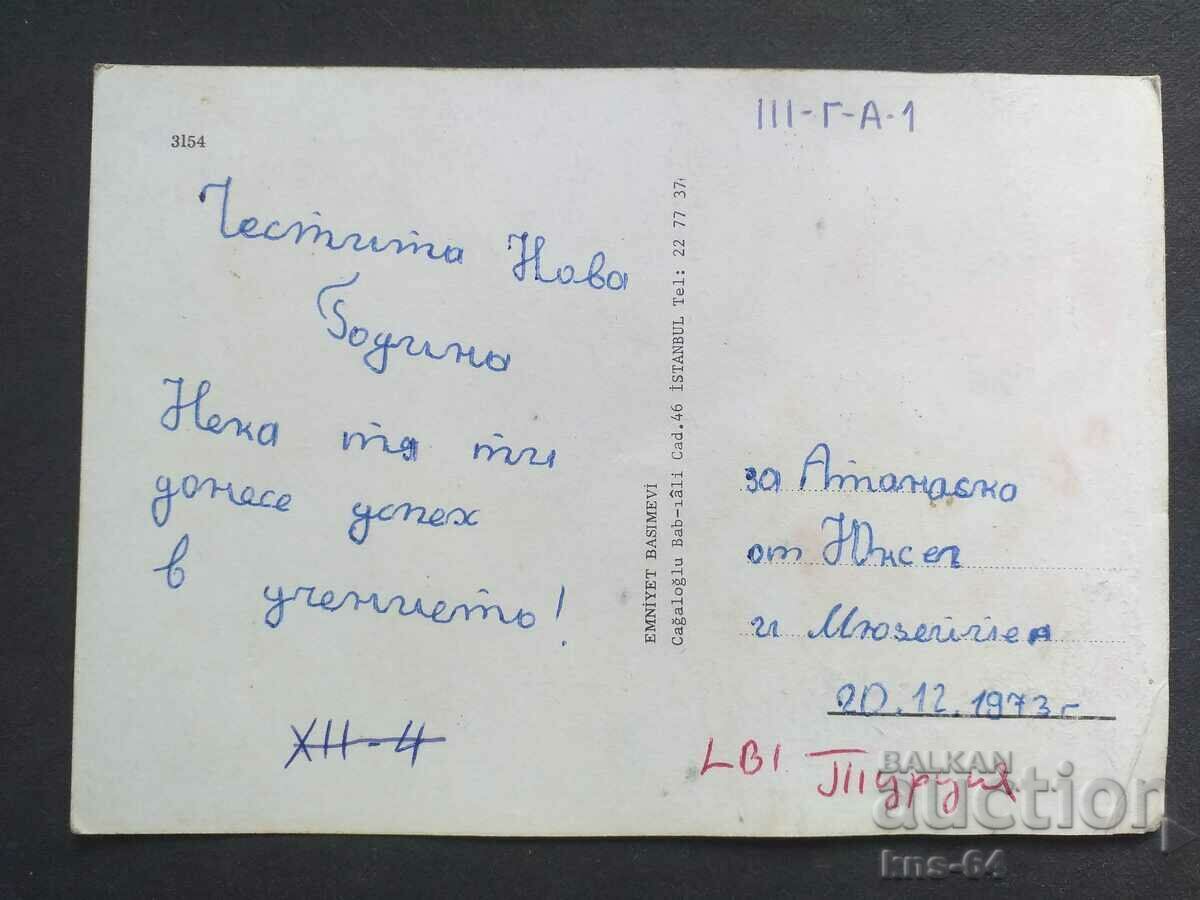 3154
Честита Нова
Година
Нека тя ти
донесе успех
в учението!
XII-4
EMNİYET BASIMEVİ
Cağaloğlu Bab-ıâli Cad.46 İSTANBUL Tel: 22 77 37
III-Г-А-1
за Атанаско
от Юксел
и Мюзейпен
20.12.1973 г
LBI Турция
BALKAN
auction
kns-64